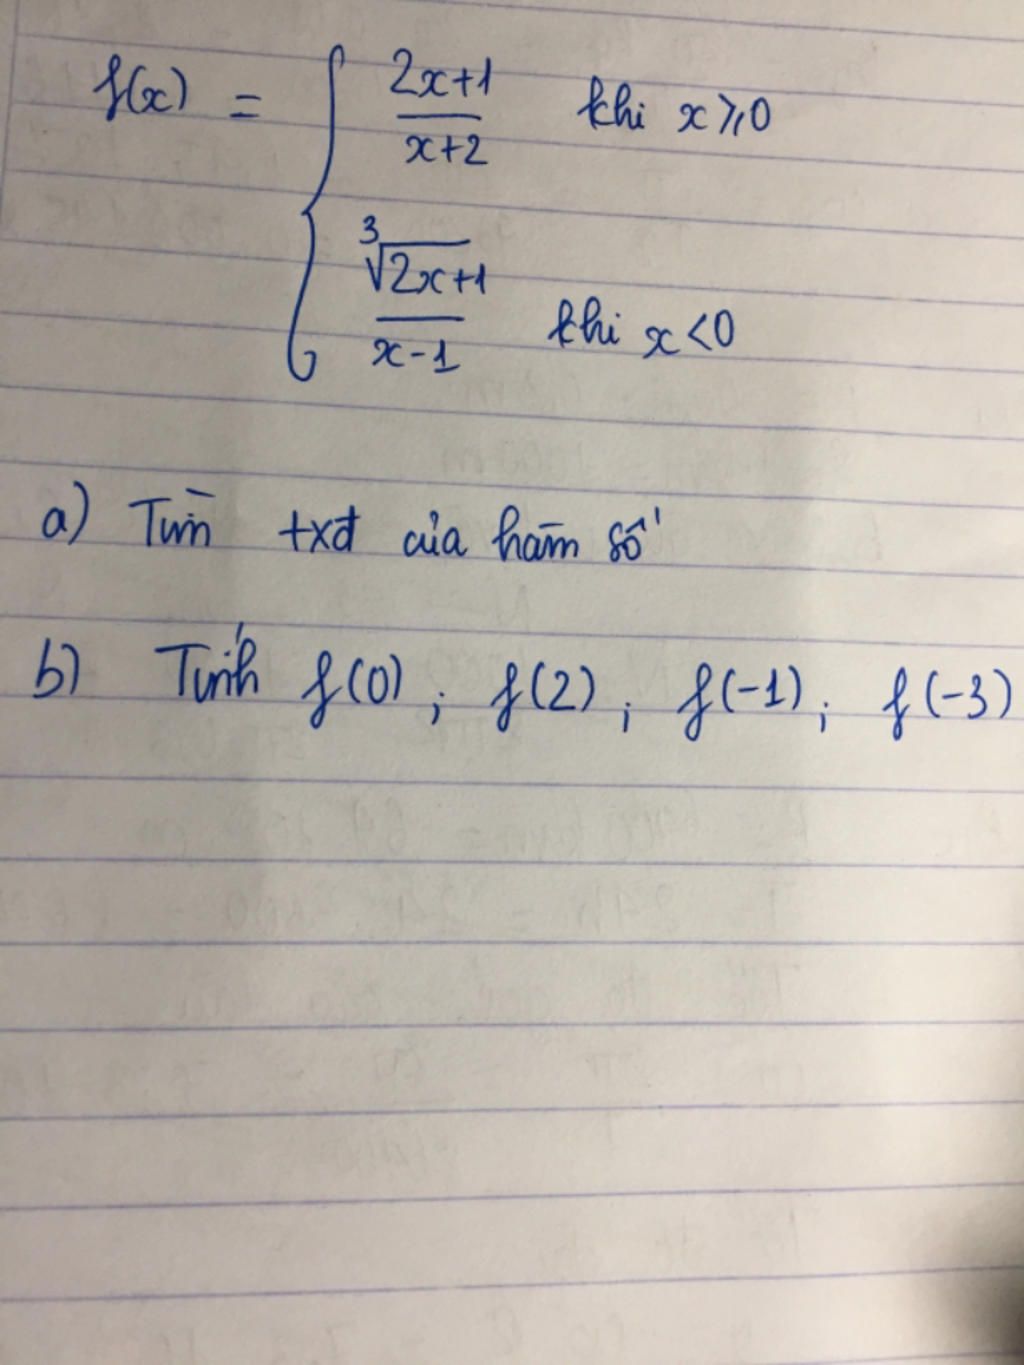 f(x) = { (2x+1)/(x+2) khi x ⩾ 0
∛(2x+1)/(x-1) khi x < 0
a) Tìm txđ của hàm số
b) Tính f(0) ; f(2) ; f(-1) ; f(-3)